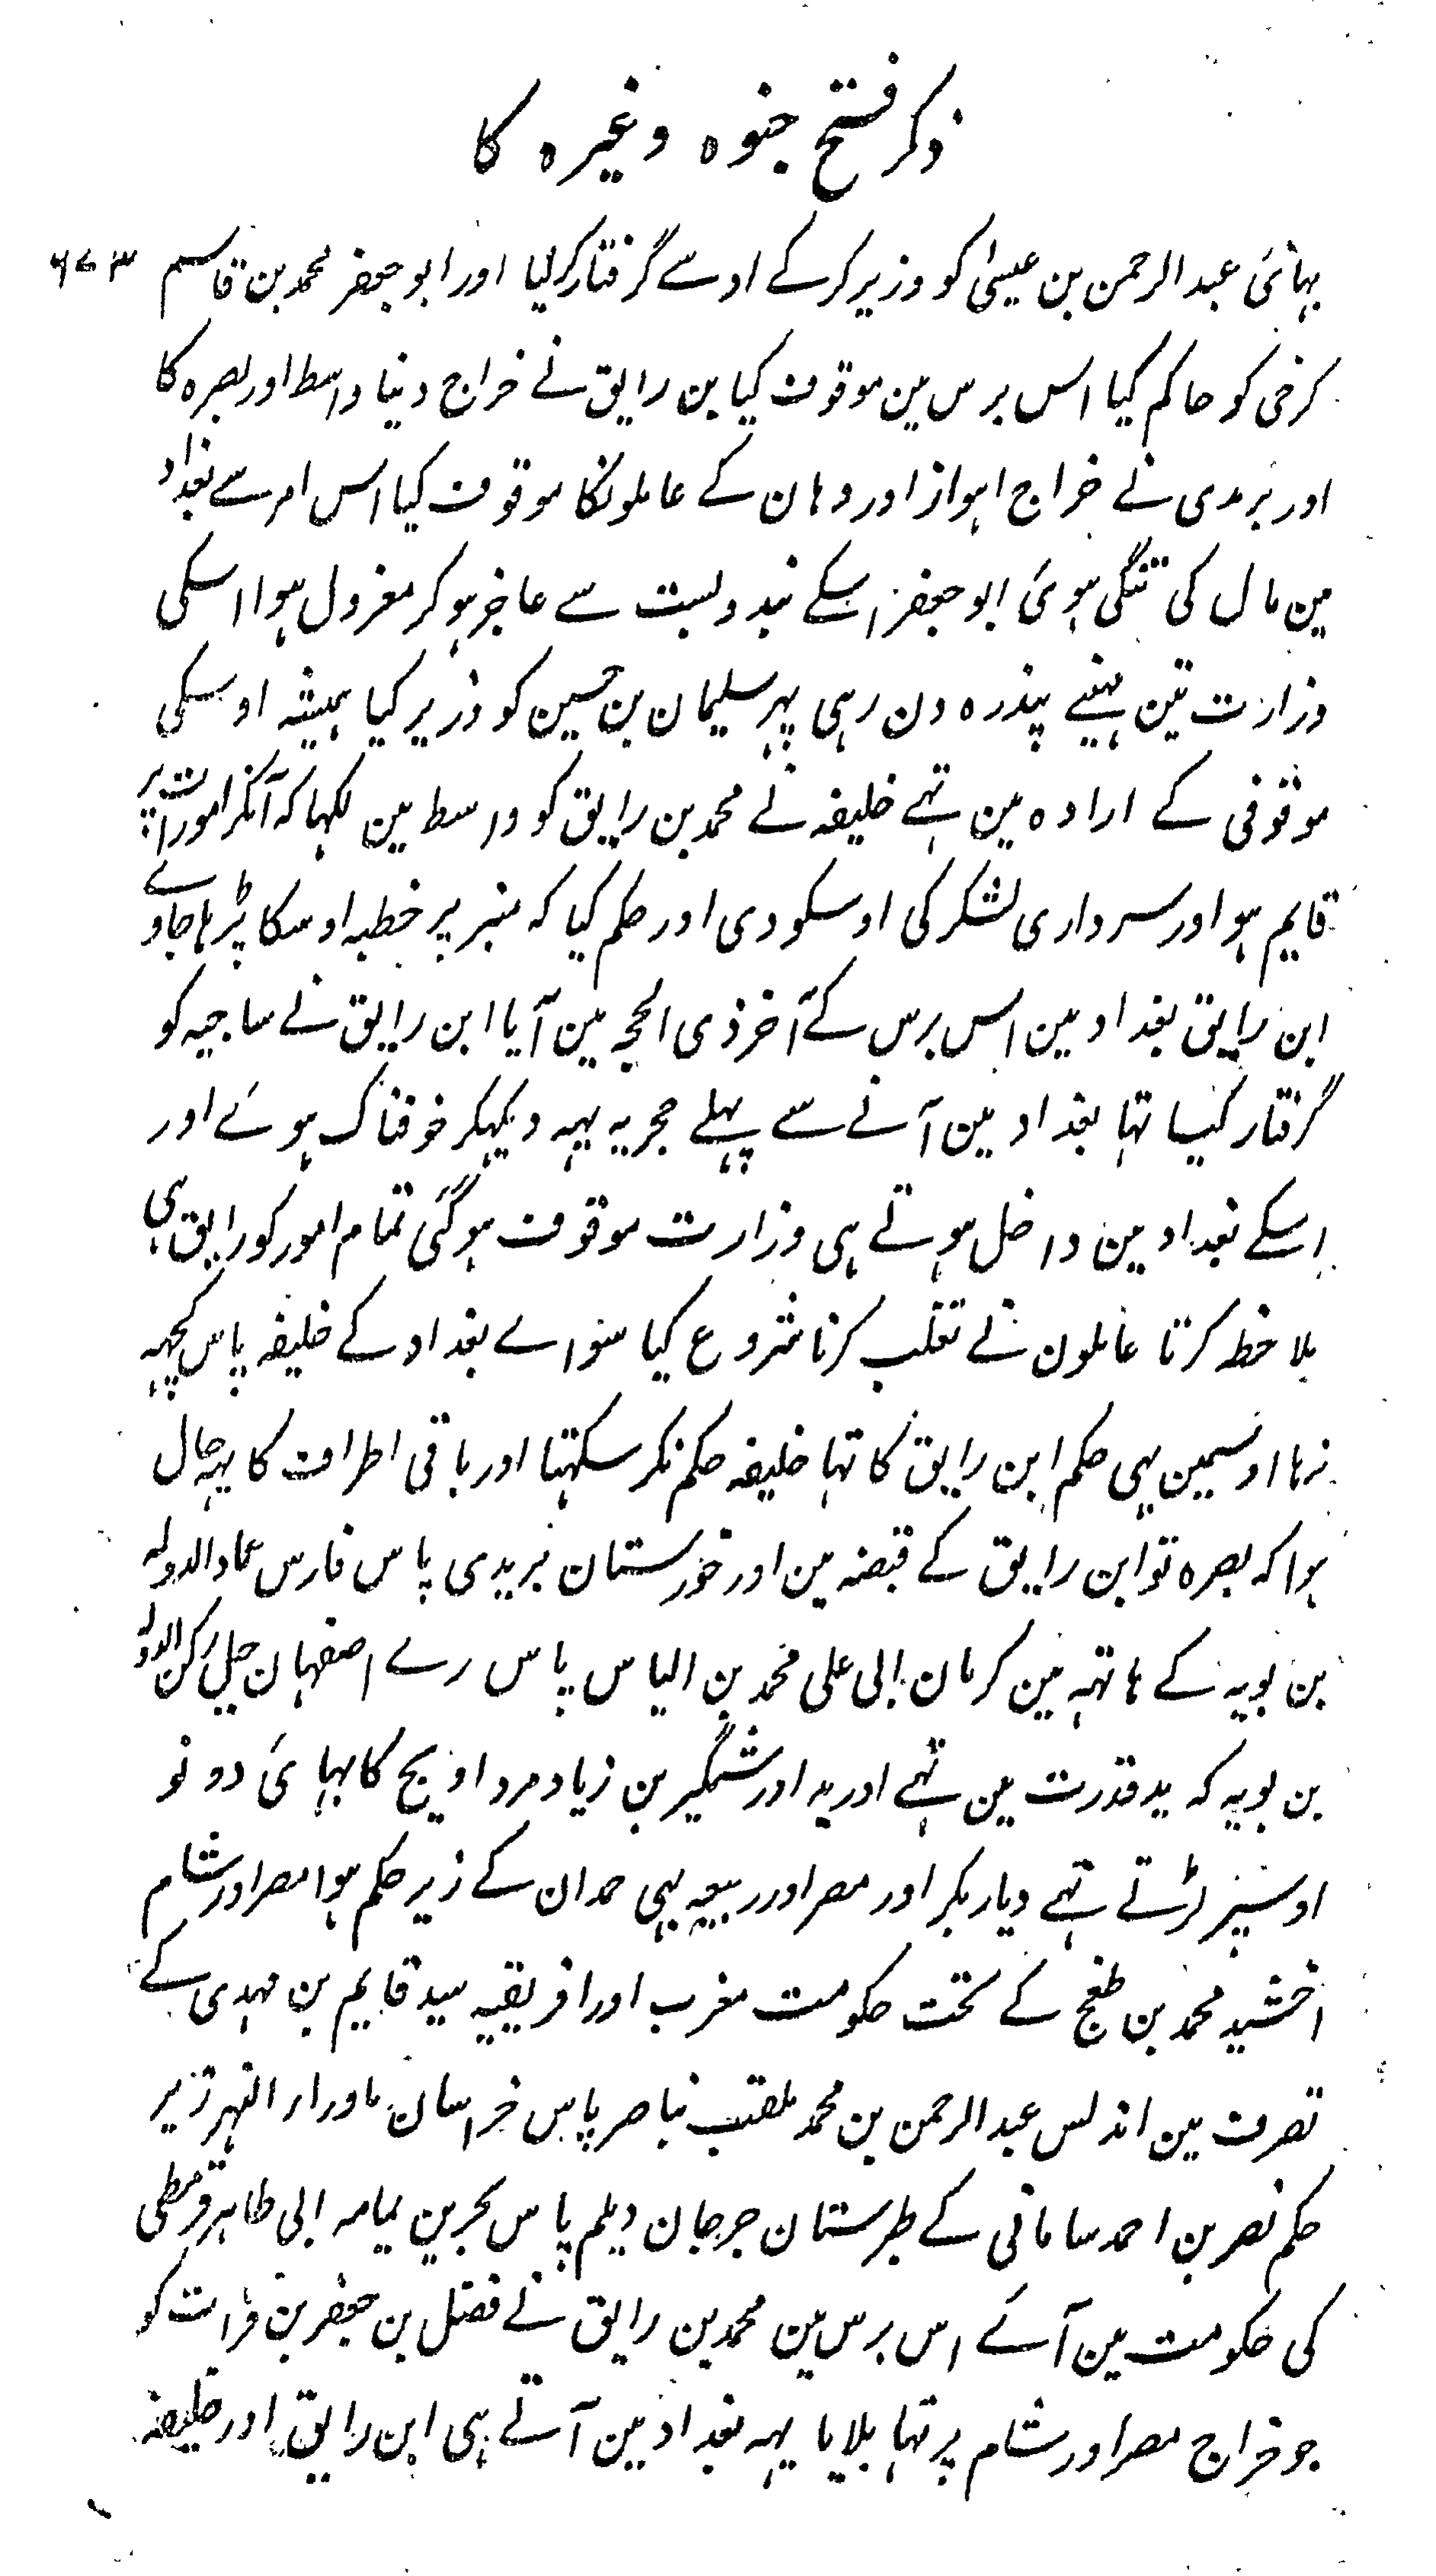 ذکر فتح جنوہ وغیرہ کا
بہائی عبدالرحمن بن عیسیٰ کو وزیر کرکے اوسے گرفتار کرلیا اور ابو جعفر محمد بن قاسم ۶۷۳
کرخی کو حاکم کیا اس برس مین موقوف کیا بن رایق نے خراج دنیا واسط اور بصرہ کا
اور بریدی نے خراج اہواز اور وہان کے عاملونکا موقوف کیا اس امر سے بغداد
مین مال کی تنگی ہوئی ابو جعفر اسکے بندوبست سے عاجز ہوکر معزول ہوا اسکی
وزارت تین مہینے پندرہ دن رہی پہر سلیمان بن حسین کو وزیر کیا ہمیشہ اوسکی
موقوفی کے ارادہ مین تہے خلیفہ نے محمد بن رایق کو واسط مین لکہا کہ آنکر امورات پر
قایم ہو اور سرداری لشکر کی اوسکو دی اور حکم کیا کہ منبر پر خطبہ اوسکا پڑہا جاوے
ابن رایق بغداد مین اس برس کے آخر ذی الحجہ مین آیا ابن رایق نے ساجیہ کو
گرفتار کیا تہا بغداد مین آنے سے پہلے حجریہ یہہ دیکہکر خوفناک ہوئے اور
اسکے بغداد مین داخل ہوتے ہی وزارت موقوف ہوگئی تمام امور کو رایق ہی
ملاحظہ کرتا عاملون نے تغلب کرنا شروع کیا سواے بغداد کے خلیفہ پاس کچہہ
نرہا اوسمین بہی حکم ابن رایق کا تہا خلیفہ حکم نکر سکہتا اور باقی اطراف کا یہہ حال
ہوا کہ بصرہ تو ابن رایق کے قبضہ مین اور خوزستان بریدی پاس فارس عماد الدولہ
بن بویہ کے ہاتہہ مین کرمان ابی علی محمد بن الیاس پاس رے اصفہان جبل رکن الدولہ
بن بویہ کہ ید قدرت مین تہے اور یہ اور شمگیر بن زیاد مرداویج کا بہائی دونو
اوسپر لڑتے تہے دیار بکر اور مصر اور ربیعہ بنی حمدان کے زیر حکم ہوا مصر اور شام
اخشید محمد بن طغج کے تحت حکومت مغرب اور افریقیہ سید قایم بن مہدی کے
تصرف مین اندلس عبدالرحمن بن محمد ملقب بناصر پاس خراسان ماوراء النہر زیر
حکم نصر بن احمد سامانی کے طبرستان جرجان دیلم پاس بحرین یمامہ ابی طاہر قرمطی
کی حکومت مین آئے اس برس مین محمد بن رایق نے فضل بن جعفر بن فرات کو
جو خراج مصر اور شام پر تہا بلایا یہہ بغداد مین آتے ہی ابن رایق اور خلیفہ